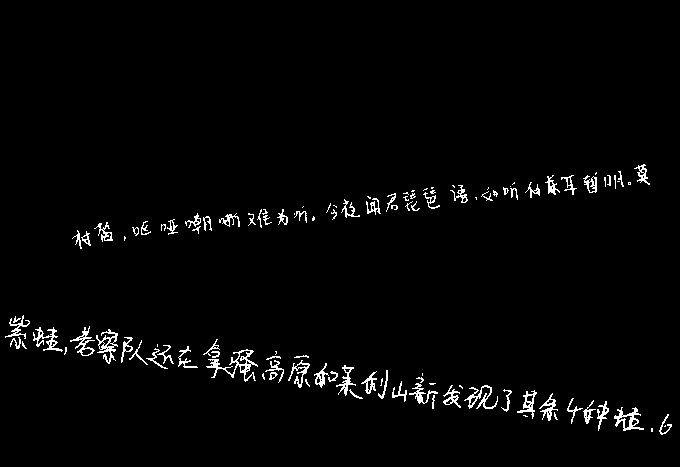 村笛，呕哑嘲哳难为听。今夜闻君琵琶语，如听仙乐耳暂明。莫
紫蛙，考察队还在拿骚高原和莱利山新发现了其余4种蛙，6